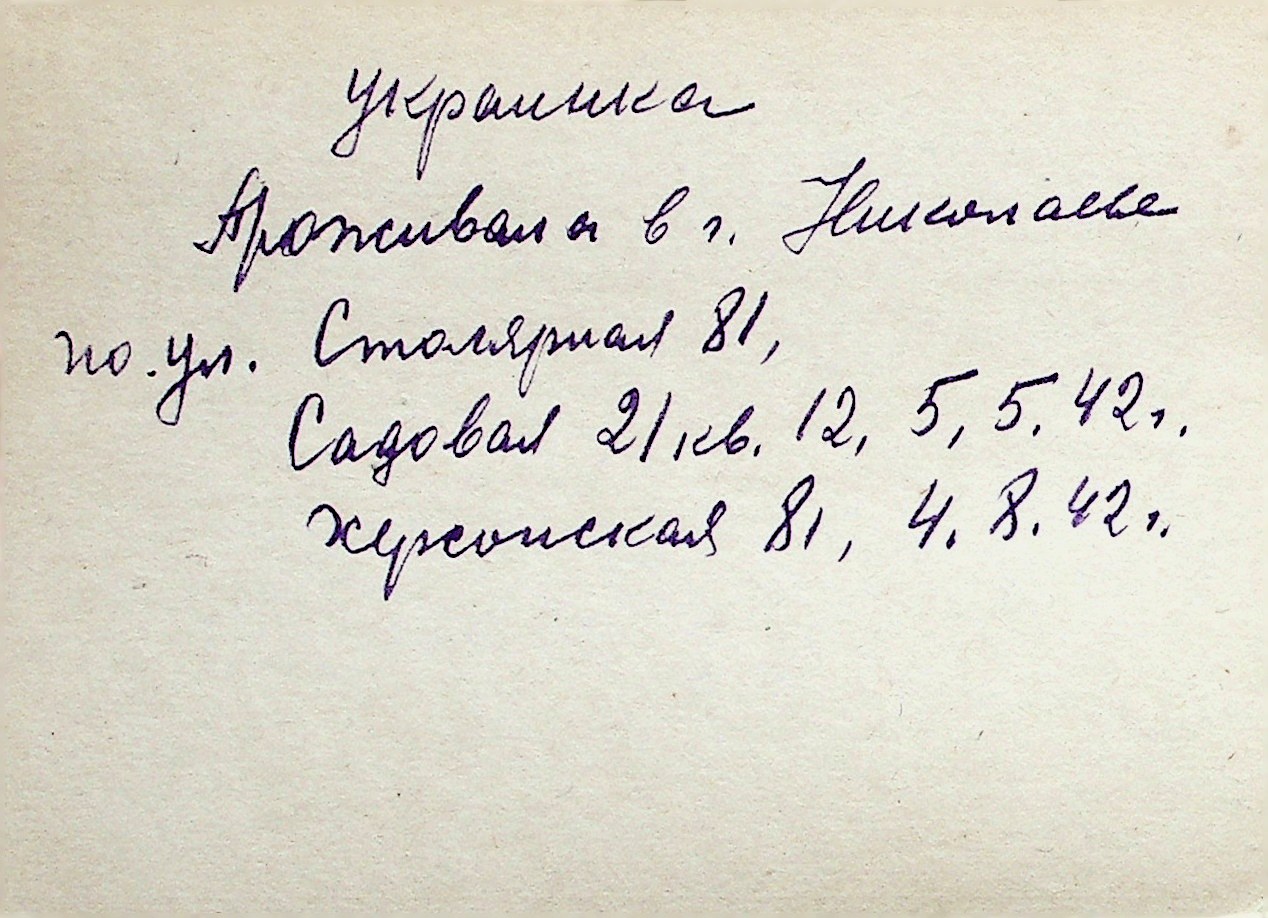 украинка
Проживала в г. Николаеве
по. ул. Столярная 81,
Садовая 21 кв. 12, 5, 5. 42г.
Херсонская 81, 4. 8. 42г.